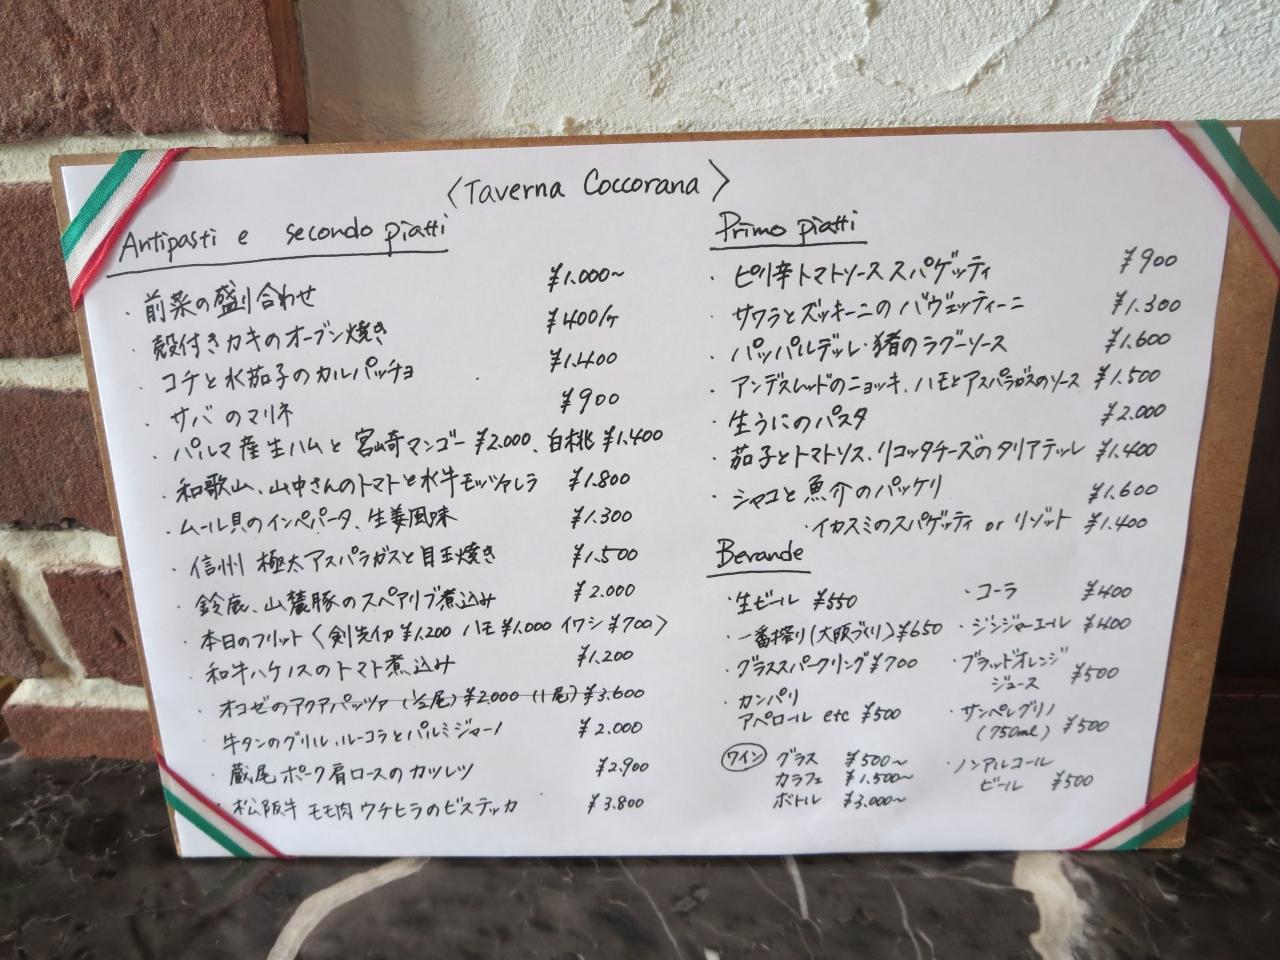 〈Taverna Coccorana〉
Antipasti e secondo piatti
・前菜の盛り合わせ ¥1.000~
・殻付きカキのオーブン焼き ¥400/ヶ
・コチと水茄子のカルパッチョ ¥1.400
・サバのマリネ ¥900
・パルマ産生ハムと宮崎マンゴー ¥2.000、白桃 ¥1.400
・和歌山、山中さんのトマトと水牛モッツァレラ ¥1.800
・ムール貝のインペパータ、生姜風味 ¥1.300
・信州 極太アスパラガスと目玉焼き ¥1.500
・鈴鹿、山麓豚のスペアリブ煮込み ¥2.000
・本日のフリット〈剣先イカ ¥1.200 ハモ ¥1.000 イワシ ¥700〉
・和牛ハチノスのトマト煮込み ¥1.200
・オコゼのアクアパッツァ (½尾) ¥2.000 (1尾) ¥3.600
・牛タンのグリル、ルーコラとパルミジャーノ ¥2.000
・蔵尾ポーク肩ロースのカツレツ ¥2.900
・松阪牛 モモ肉 ウチヒラのビステッカ ¥3.800
Primo piatti
・ピリ辛トマトソーススパゲッティ ¥900
・サワラとズッキーニのバヴェッティーニ ¥1.300
・パッパルデッレ・猪のラグーソース ¥1.600
・アンデスレッドのニョッキ、ハモとアスパラガスのソース ¥1.500
・生うにのパスタ ¥2.000
・茄子とトマトソス、リコッタチーズのタリアテッレ ¥1.400
・シャコと魚介のパッケリ ¥1.600
・イカスミのスパゲッティ or リゾット ¥1.400
Berande
・生ビール ¥550
・一番搾り(大阪づくり) ¥650
・グラススパークリング ¥700
・カンパリ
アペロール etc ¥500
ワイン グラス ¥500~
カラフェ ¥1.500~
ボトル ¥3.000~
・コーラ ¥400
・ジンジャーエール ¥400
・ブラッドオレンジ
ジュース ¥500
・サンペレグリノ
(750ml) ¥500
・ノンアルコール
ビール ¥500